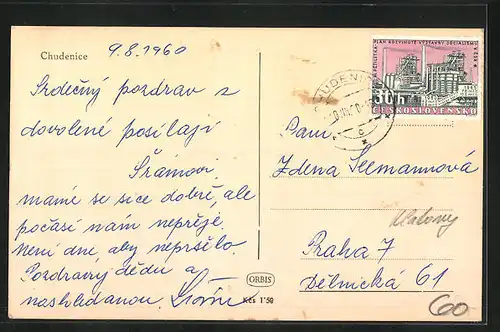 Chudenice
9.8.1960
Srdečný pozdrav z
dovolené posílají
Šrámovi.
máme se sice dobře, ale
počasí nám nepřeje.
Není dne, aby nepršelo.
Pozdravy dědu a
nashledanou.
PLAN ROZVINUTÉ VÝSTAVBY SOCIALISMU
30 h
ČESKOSLOVENSKO
CHUDENICE
Paní
Zdena Seemannová
Klatovy
Praha 7
Dělnická 61
ORBIS
Kčs 1'50
600